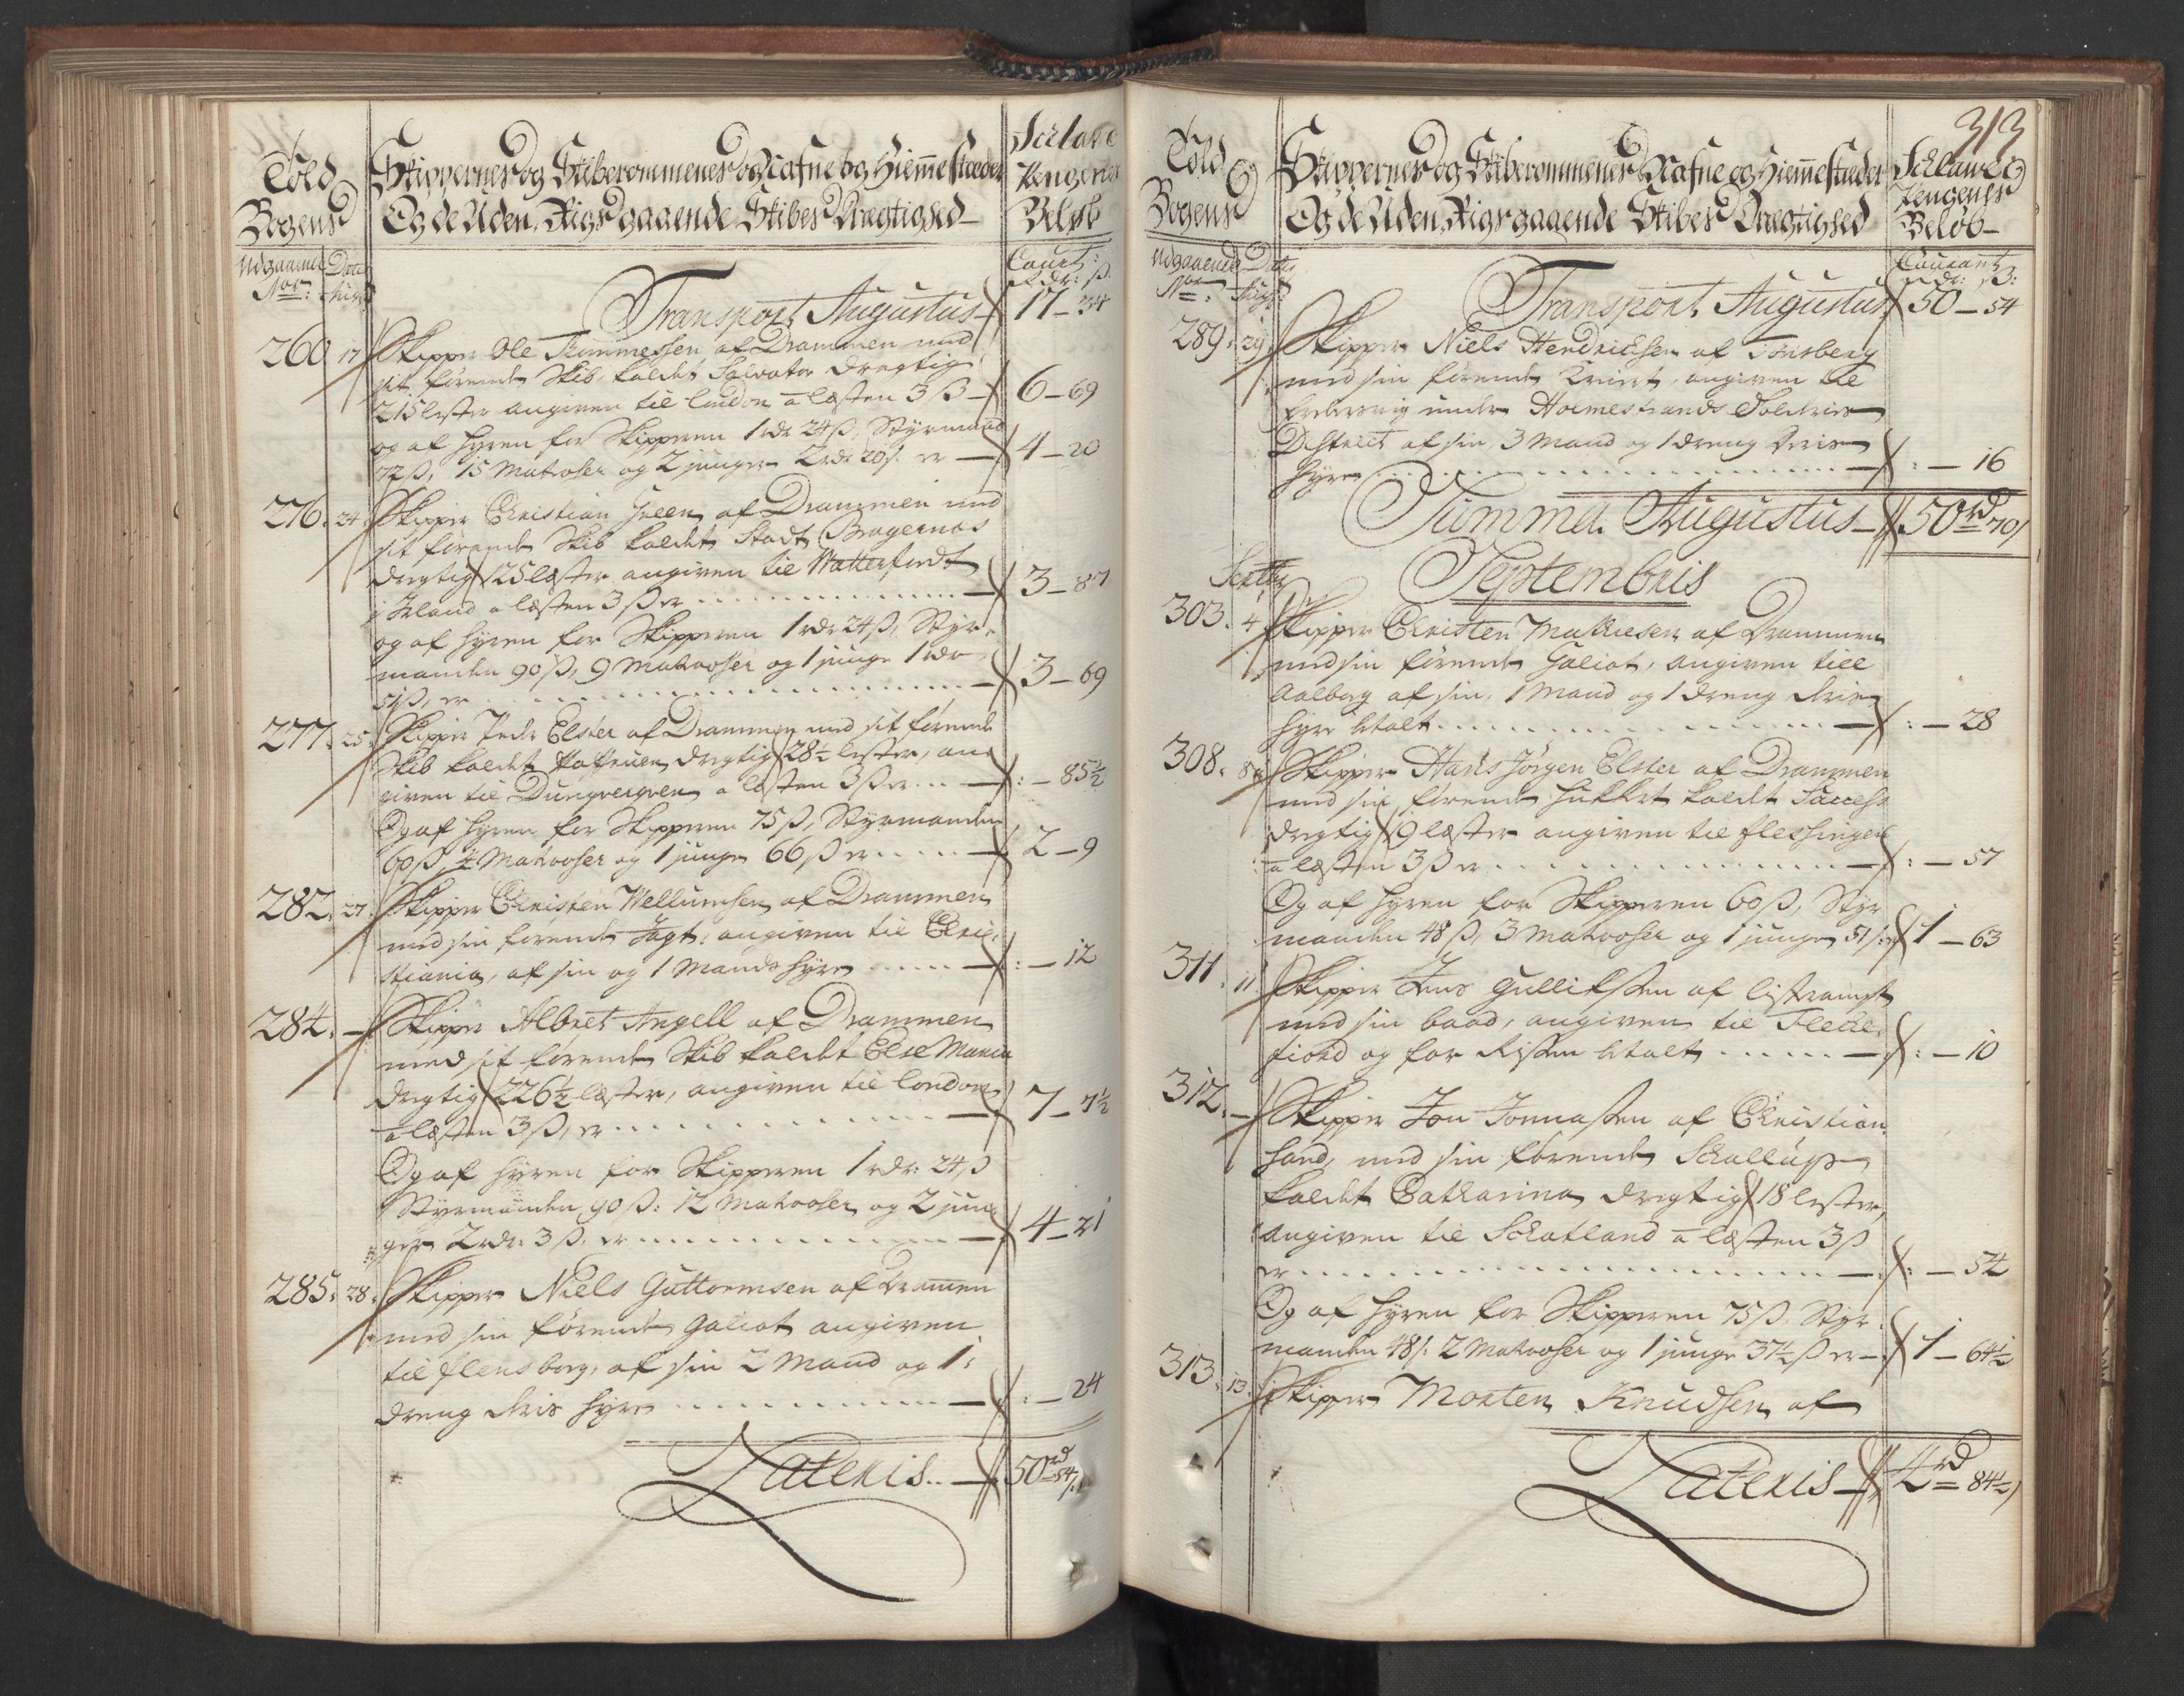 Told
Bogens
Skippernes og Skiberommenes Nafne og Hiemmestæder
Og de Uden Rigs gaaende Skibes Drægtighed
Sclave
Pengenes
Beløb
Udgaaende Dato
No:
Court:
rdr: ß
Transport Augustus 17 – 34
260. 17 Skipper Ole Tommessen af Drammen med
sit førende Skib kaldet Salvator drægtig
215 lester angiven til London a læsten 3 ß 6 – 69
og af hyren for Skipperen 1 rdr 24 ß, Styrmand
72 ß, 15 Matroser og 2 junger 2 rdr 20 ß er 4 – 20
276. 24. Skipper Christian Green af Drammen med
sit førende Skib kaldet Stadt Bragernæs
drægtig 125 læster angiven til Watterfordt
i Irland a læsten 3 ß er 3 – 87
og af hyren for Skipperen 1 rdr 24 ß, Styr-
manden 90 ß, 9 Matrooser og 1 junge 1 rdr
51 ß, er 3 – 69
277. 25. Skipper Peder Elster af Drammen med sit førende
Skib kaldet Haffruen drægtig 28½ lester, an-
given til Dungvergven a læsten 3 ß er : – 85½
Og af hyren for Skipperen 75 ß, Styrmanden
60 ß, 4 Matrooser og 1 junge 66 ß er 2 – 9
282. 27. Skipper Christen Wellumsen af Drammen
med sin førende Jagt, angiven til Chri-
stiania, af sin og 1 Mands hyre : – 12
284. – Skipper Albret Angell af Drammen
med sit førende Skib kaldet Else Maria
drægtig 226½ læster, angiven til London
a læsten 3 ß, er 7 – 7½
Og af hyren for Skipperen 1 rdr: 24 ß
Styrmanden 90 ß: 12 Matrooser og 2 jun-
ger 2 rdr: 3 ß, er 4 – 21
285. 28. Skipper Niels Guttormsen af Dramen
med sin førende Galiot angiven
til Flensborg, af sin 2 Mand og 1
dreng dris hyre : – 24
Lateris 50 rd 54 ß
313
Told
Bogens
Skippernes og Skiberommenes Nafne og Hiemmestæder
Og de Uden Rigs gaaende Skibes Drægtighed
Sclawe
Pengenes
Beløb
Udgaaende Dato
No: Aug:
Courant
rdr: ß:
Transport Augustus 50 – 54
289. 29 Skipper Niels Hendrichsen af Tønsberg
med sin førende Kreiert, angiven til
Frederrvig under Holmestrands Tolderies
District af sin, 3 Mand og 1 dreng dris
hyre : – 16
Summa Augustus 50 rd 70 ß
Septbr Septembris
303. 4 Skipper Christen Mathiesen af Drammen
med sin førende Galiot, angiven till
Aalborg af sin, 1 Mand og 1 dreng dris
hyre betalt : – 28
308. 8 Skipper Hans Jørgen Elster af Drammen
med sin førende Hukkert kaldet Success
drægtig 19 læster angiven til Flessingen
a læsten 3 ß er : – 57
Og af hyren for Skipperen 60 ß, Styr
manden 48 ß, 3 Matrooser og 1 junge 51 ß er 1 – 63
311. 11 Skipper Jens Gulliksen af
med sin baad, angiven til Flecke-
fiord og for Risen betalt : – 10
312. – Skipper Jon Jonnassen af Christian-
sand, med sin førende Schallups
kaldet Catharina drægtig 18 lester,
angiven til Schotland a læsten 3 ß
er : – 54
Og af hyren for Skipperen 75 ß, Styr-
manden 48 ß: 2 Matrooser og 1 junge 37½ ß er 1 – 64½
313. 13. Skipper Morten Knudsen af
Lateris 4 rd 84½ ß